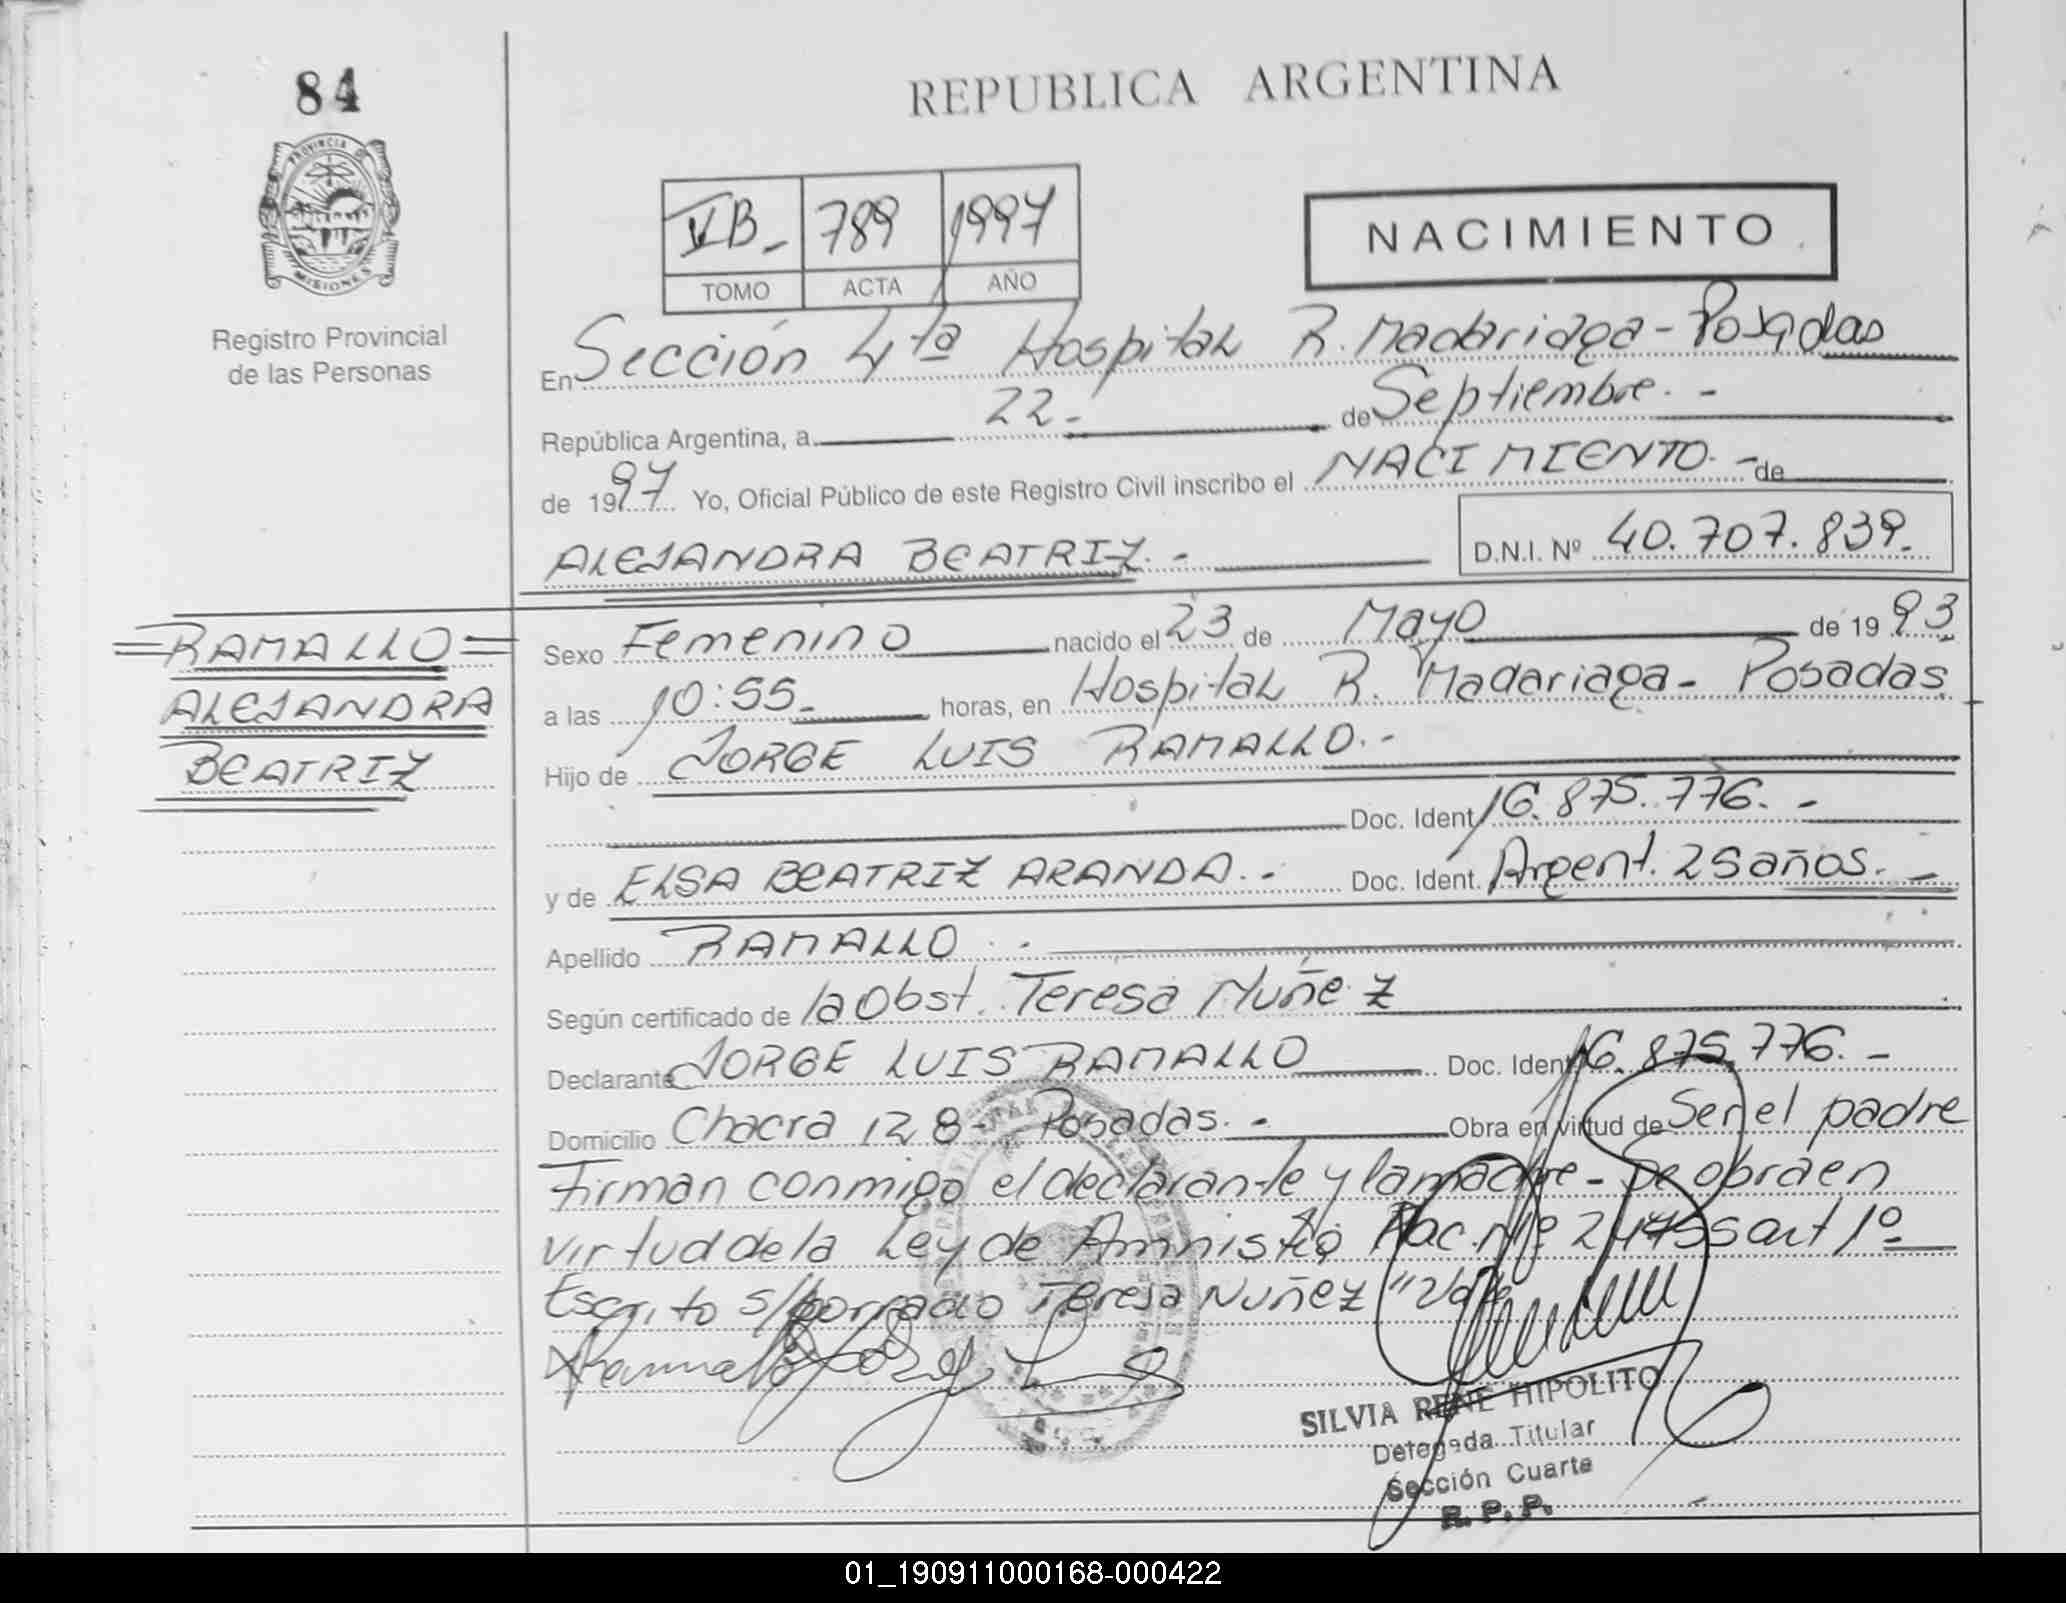 84
REPUBLICA ARGENTINA
PROVINCIA DE
MISIONES
Registro Provincial
de las Personas
VB - 789 1997
TOMO ACTA AÑO
NACIMIENTO
En Sección 4ta Hospital R. Madariaga - Posadas
República Argentina, a 22.- de Septiembre. -
de 1997 Yo, Oficial Público de este Registro Civil inscribo el NACIMIENTO. - de
ALEJANDRA BEATRIZ. - D.N.I. Nº 40.707.839.
=RAMALLO=
ALEJANDRA
BEATRIZ
Sexo Femenino nacido el 23 de Mayo de 1993
a las 10:55.- horas, en Hospital R. Madariaga - Posadas
Hijo de JORGE LUIS RAMALLO. -
Doc. Ident. 16.875.776. -
y de ELSA BEATRIZ ARANDA. - Doc. Ident. Argent. 25 años. -
Apellido RAMALLO . -
Según certificado de la Obst. Teresa Nuñez
Declarante JORGE LUIS RAMALLO Doc. Ident. 16.875.776. -
Domicilio Chacra 128 - Posadas. - Obra en virtud de Ser el padre
Firman conmigo el declarante y la madre - Se obra en
virtud de la Ley de Amnistía Nac. Nº 24755 art 1º
Escrito s/borrado Teresa Nuñez "Vale
Ramallo Jorge Luis
SILVIA RENE HIPOLITO
Delegada Titular
Sección Cuarta
R. P. P.
01_190911000168-000422